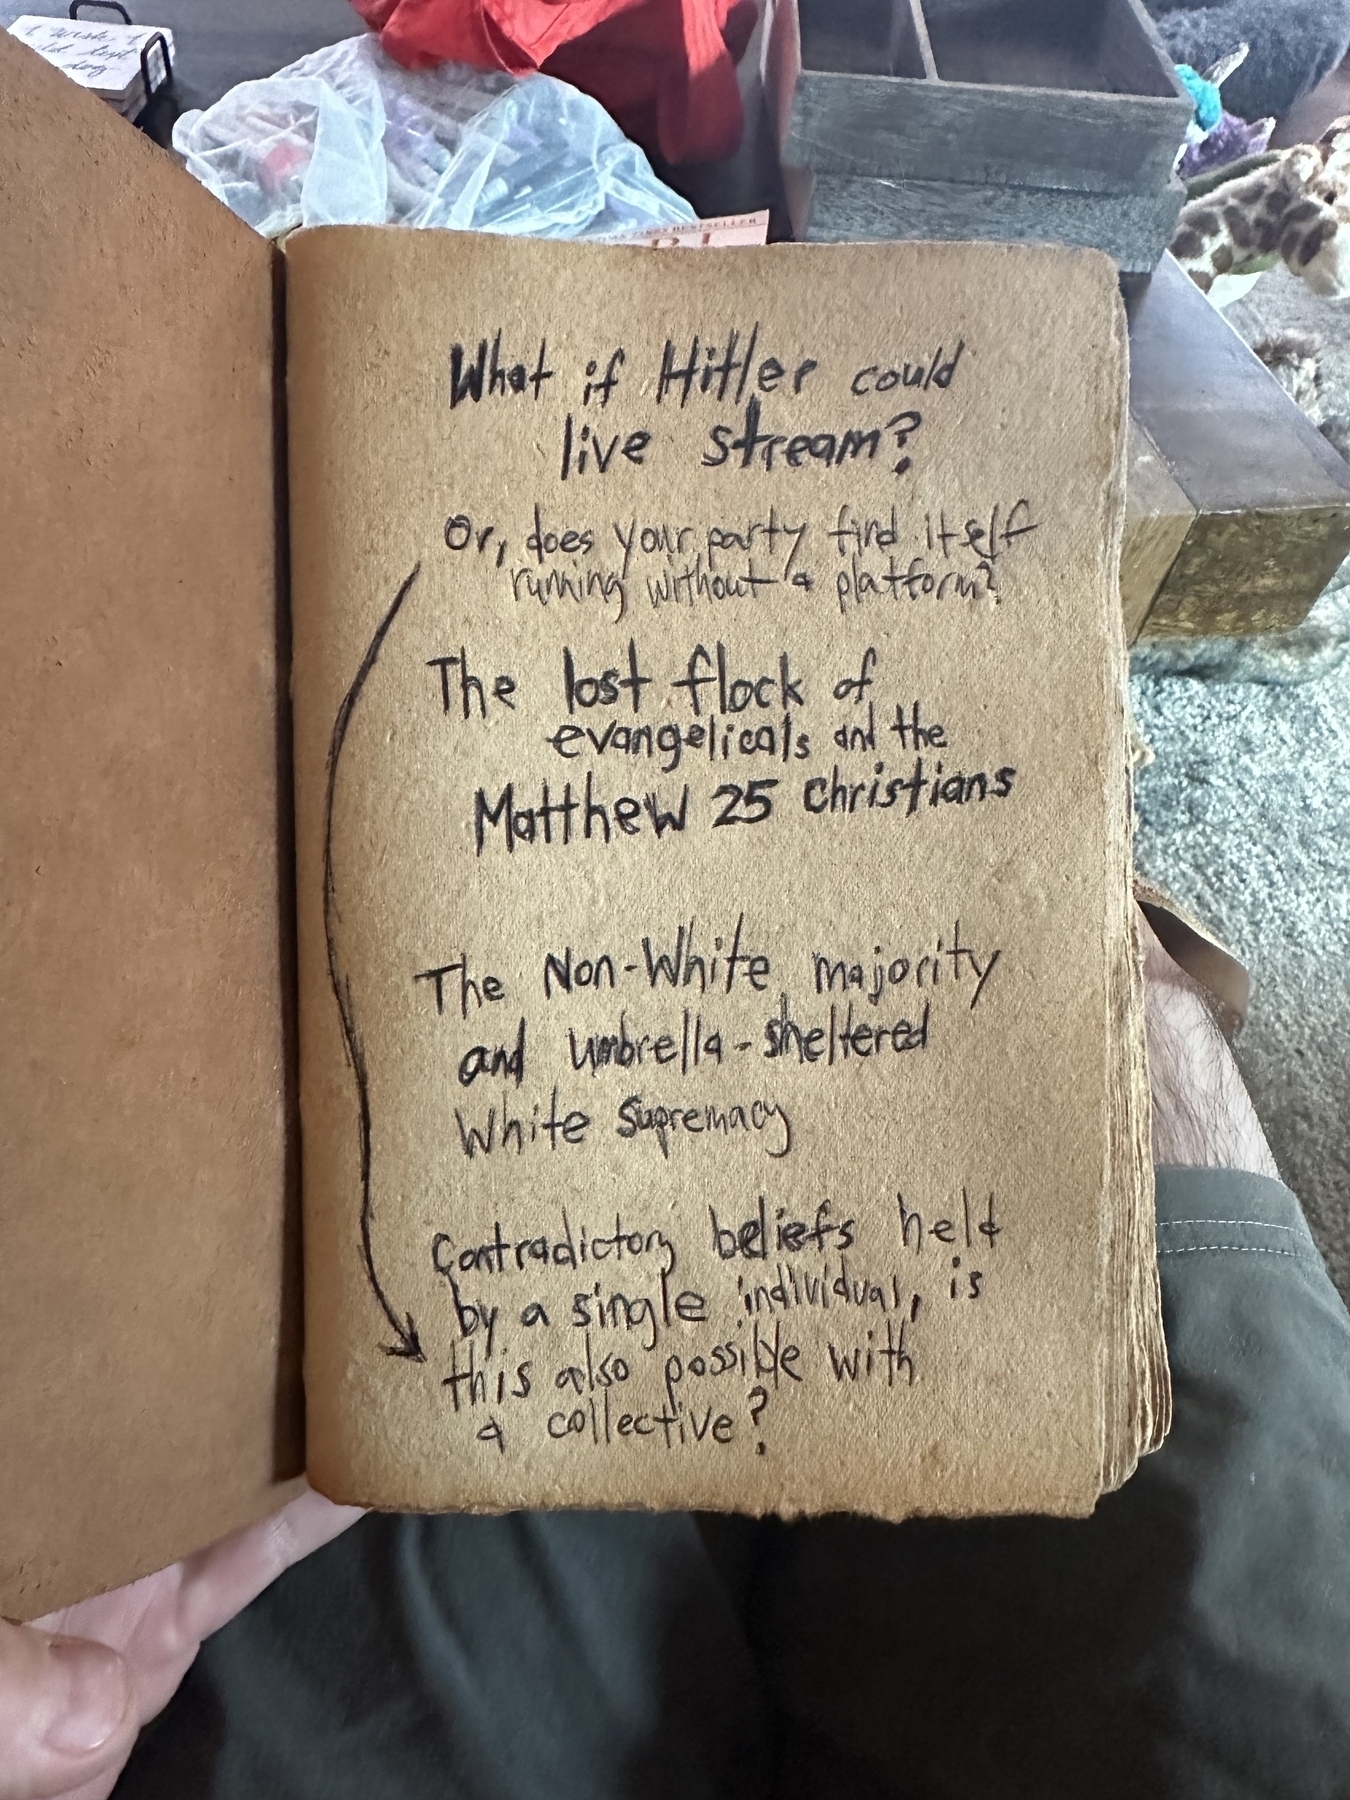 I wish I
dog
BESTSELLER
What if Hitler could
live stream?
Or, does your party find itself
running without a platform?
The lost flock of
evangelicals and the
Matthew 25 Christians
The Non-White majority
and umbrella-sheltered
White Supremacy
Contradictory beliefs held
by a single individual, is
this also possible with
a collective?